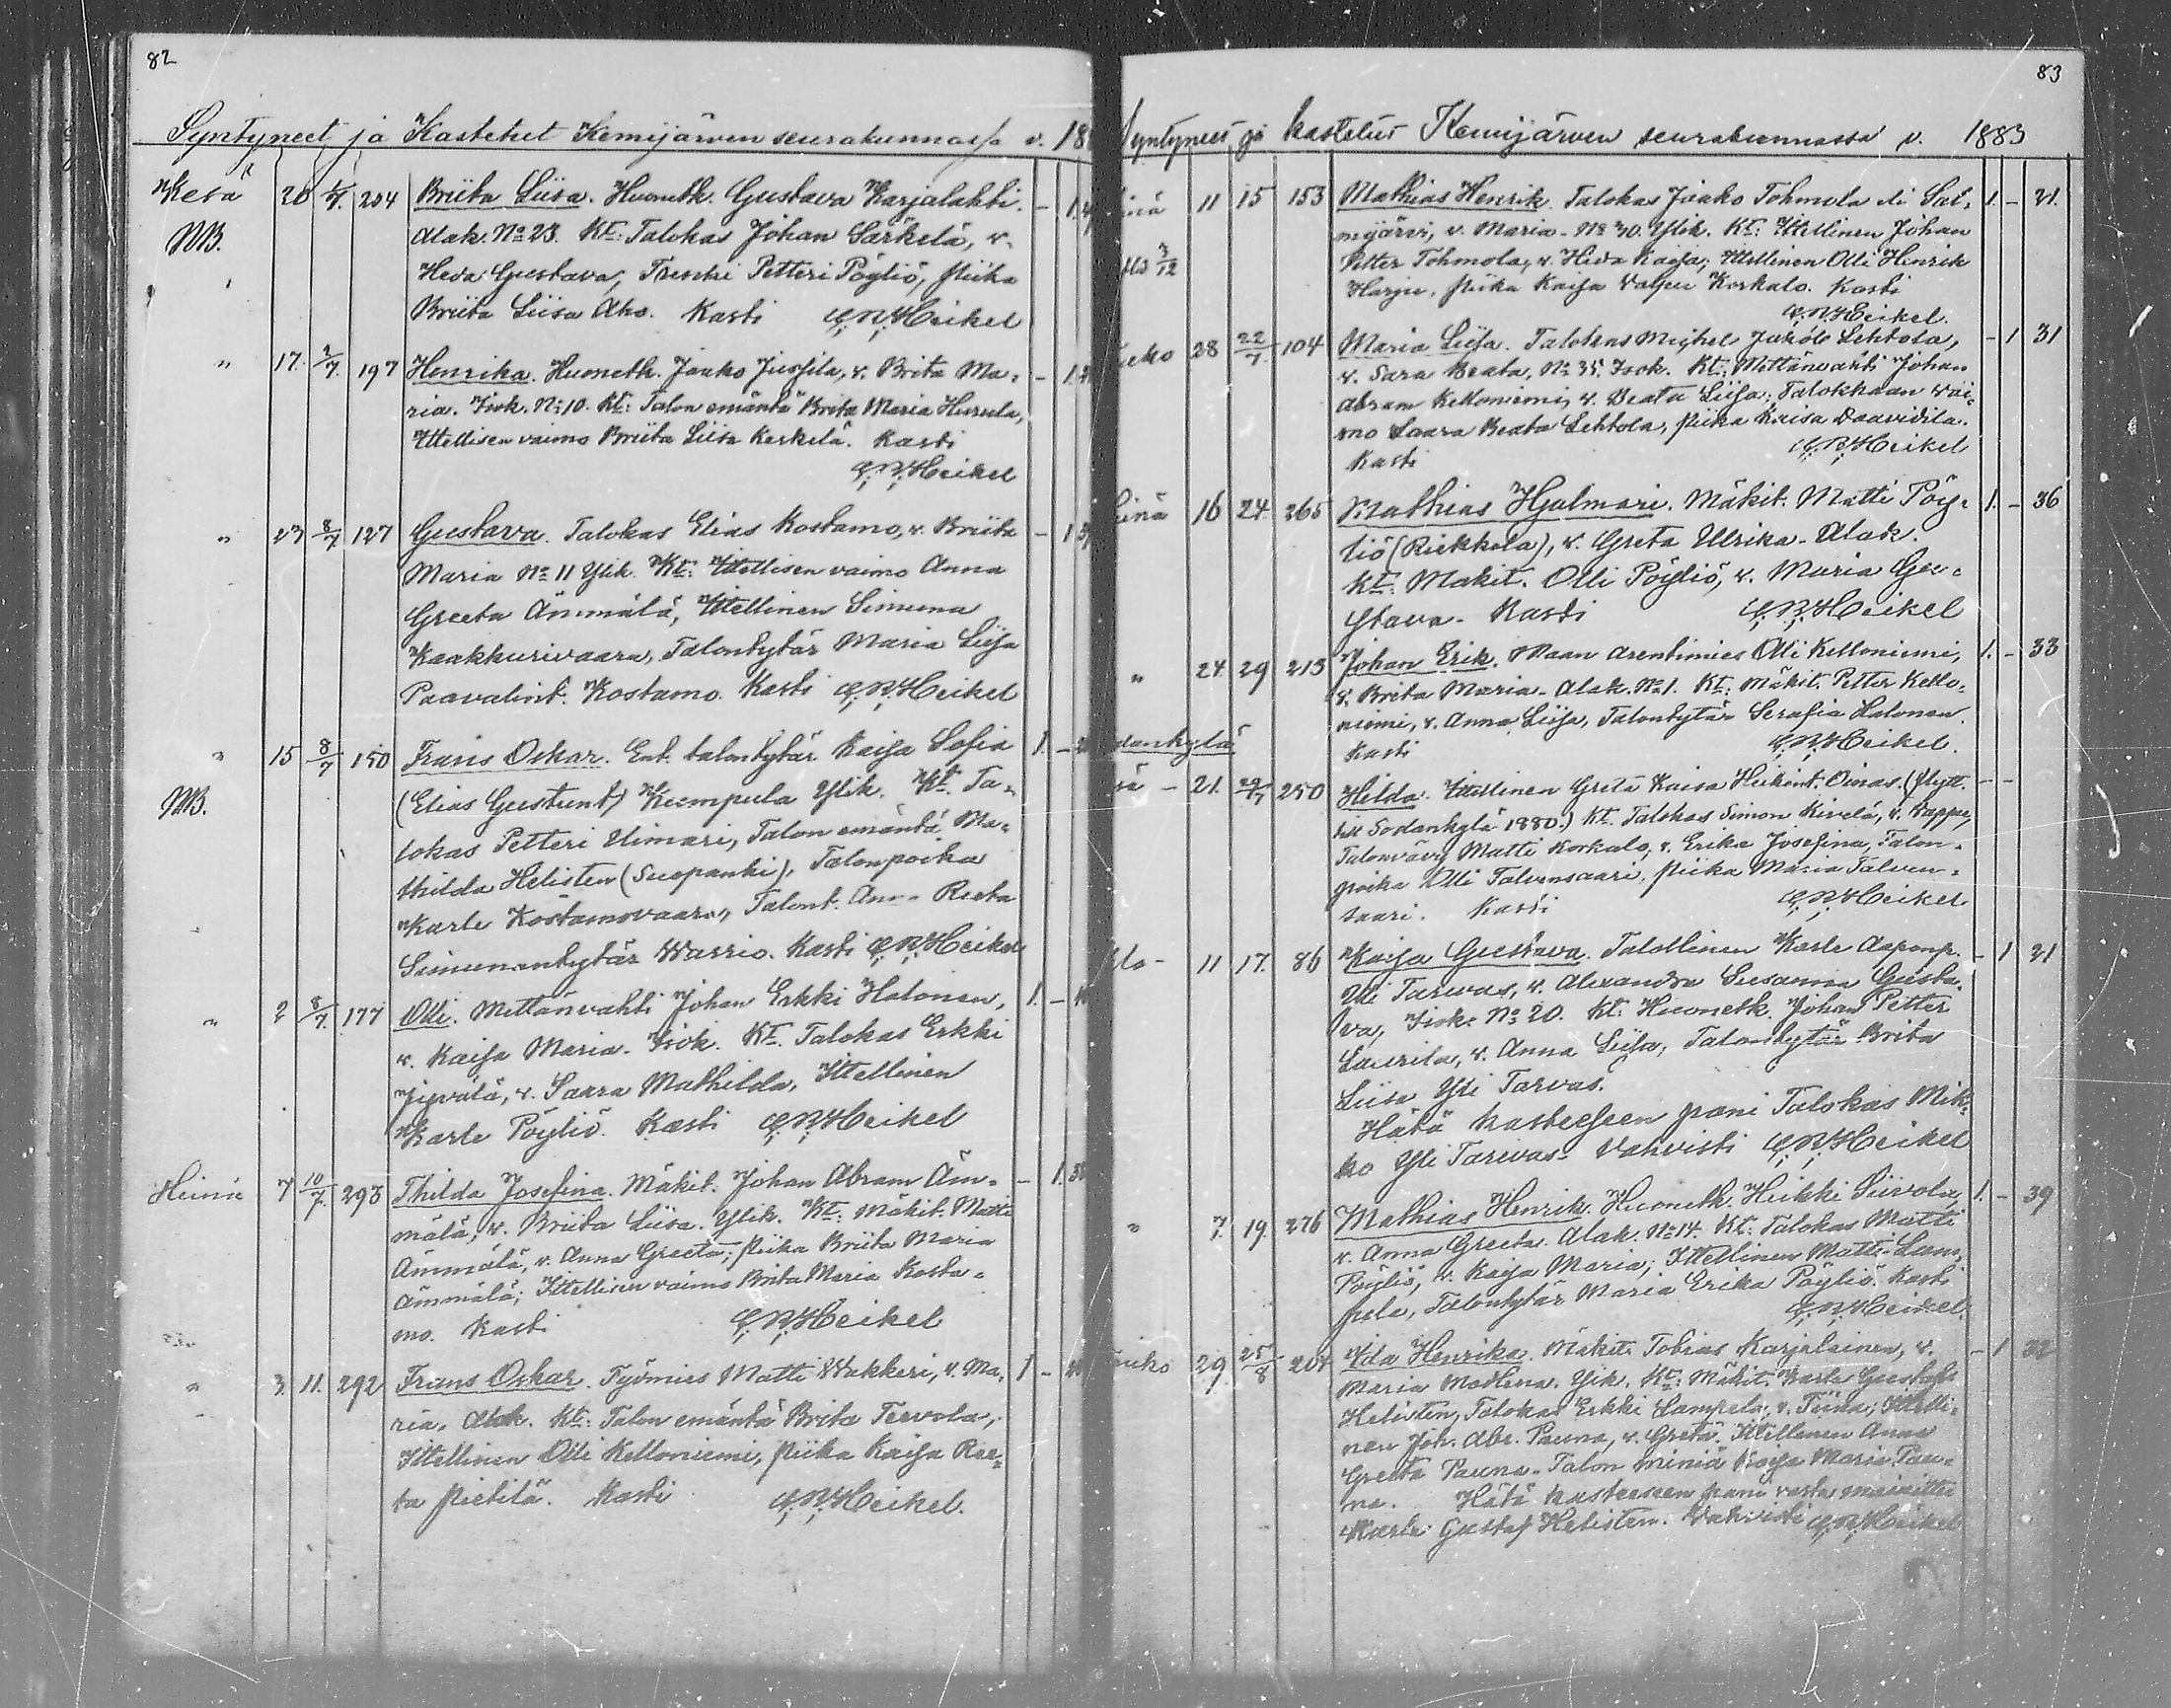 82
Syntyneet ja Kastetut Kemijärven seurakunnassa v. 18
Kesä 20 204 Briita Liisa. Huoneth. Gustava Karjalahti. - 1.
NB. Alak. No 23. Kt: Talokas Johan Särkelä, v.
Heva Gustava, Trenki Petteri Pöyliö, piika
Briita Liisa Aho. Kasti Heikel
" 17. 2/7. 197 Henrika. Huoneth. Jaako Jussila, v. Brita Ma- - 1.
ria. Isok. No 10. Kt: Talon emäntä Brita Maria Hurula,
Ittellisen vaimo Briita Liisa Kerkelä. Kasti
Heikel
" 23 8/7 127 Gustava. Talokas Elias Kostamo, v. Briita - 1
Maria No 11 Ylik. Kt: Ittellisen vaimo Anna
Greeta Ämmälä, Ittellinen Simuna
Kaakkurivaara, Talontytär Maria Liisa
Paavalint. Kostamo. Kasti Heikel
" 15 8/7 150 Frans Oskar. Ent. talontytär Kaisa Sofia 1. -
NB. (Elias Gustunt) Kumpula Ylik. Kt. Ta-
lokas Petteri Uimari, Talon emäntä Ma-
thilda Helisten (Suopanki), Talonpoika
Karle Kostamovaara, Talont. Ann- Reeta
Simunantytär Warrio. Kasti Heikel
" 2 8/7. 177 Olli. Mettänvahti Johan Erkki Halonen, 1. -
v. Kaisa Maria. Isok. Kt. Talokas Erkki
Jyvälä, v. Saara Mathilda, Ittellinen
Karle Pöyliö. Kasti Heikel
Heinä 7 10/7. 293 Thilda Josefina. Mäkit. Johan Abram Äm- - 1.
mälä, v. Briita Liisa. Ylik. Kt: Mäkit. Matti
Ämmälä, v. Anna Greeta; piika Briita Maria
Ämmälä; Ittellisen vaimo Brita Maria Kosta-
mo. Kasti Heikel
" 3. 11. 292 Frans Oskar. Työmies Matti Wakkeri, v. Ma- 1 -
ria. Alak. Kt: Talon emäntä Brita Tervola,
Ittellinen Olli Kelloniemi, piika Kaisa Ree-
ta Pietilä. Kasti Heikel.
83
Syntyneet ja kastetut Kemijärven seurakunnassa v. 1883
11 15 153 Mathias Henrik. Talokas Jaako Tohmola eli Sal- 1. - 21.
mijärvi, v. Maria. No 30. Ylik. Kt: Ittellinen Johan
3/12 Petter Tohmola, v. Heva Kaisa; Ittellinen Olli Henrik
Harju, piika Kaisa Valpu Korkalo. Kasti
Heikel.
28 22/7. 104 Maria Liisa. Talokas Mighel Jakob Lehtola, - 1 31
v. Sara Beata, No 35. Isok. Kt: Mettänvahti Johan
Abram Kelloniemi, v. Beata Liisa; Talokkaan vai-
mo Saara Beata Lehtola, piika Kaisa Daavidila.
Kasti Heikel
16 24. 265 Mathias Hjalmari. Mäkit. Matti Pöy- 1. - 36
liö (Riekkola), v. Greta Ulrika. Alak.
Kt: Mäkit. Olli Pöyliö, v. Maria Gu-
stava. Kasti Heikel
" 24 29 213 Johan Erik. Maan arentimies Olli Kelloniemi, 1. - 33
v. Brita Maria. Alak. No 1. Kt: Mäkit. Petter Kello-
niemi, v. Anna Liisa, Talontytär Serafia Halonen.
Kasti Heikel.
21. 250 Hilda. Ittellinen Greta Kaisa Heikint. Oinas. (flytt. - -
till Sodankylä 1880.) Kt. Talokas Simon Kivelä, v. Kappu,
Talonvävy Matti Korkalo, v. Erika Josefina, Talon-
poika Olli Talvensaari, piika Maria Talven-
saari. Kasti Heikel
11 17. 86 Kaisa Gustava. Talollinen Karle Aaponp. - 1 21
Yli Tarvas, v. Alexandra Susanna Gusta-
va, Isok. No 20. Kt: Huoneth. Johan Petter
Laurila, v. Anna Liisa, Talontytär Brita
Liisa Yli Tarvas.
Hätä kasteeseen pani Talokas Mik-
ko Yli Tarvas. Vahvisti Heikel
" 7. 19. 276 Mathias Henrik. Huoneth. Heikki Siivola, 1. - 39
v. Anna Greeta. Alak. No 14. Kt: Talokas Matti
Pöyliö, v. Kaisa Maria; Ittellinen Matti Lam-
pela, Talontytär Maria Erika Pöyliö. Kasti
Heikel.
29 25/8 204 Ida Henrika. Mäkit. Tobias Karjalainen, v. - 1 32
Maria Madlena. Ylik. Kt: Mäkit. Karle Gustaf
Helisten, Talokas Erkki Lampela, v. Tiina; Ittelli-
nen Joh. Abr. Pauna, v. Greta. Ittellinen Anna
Greeta Pauna. Talon miniä Kaisa Maria Pau-
na. Hätä kasteeseen pani vasta mainittu
Karle Gustaf Helisten. Vahvisti Heikel